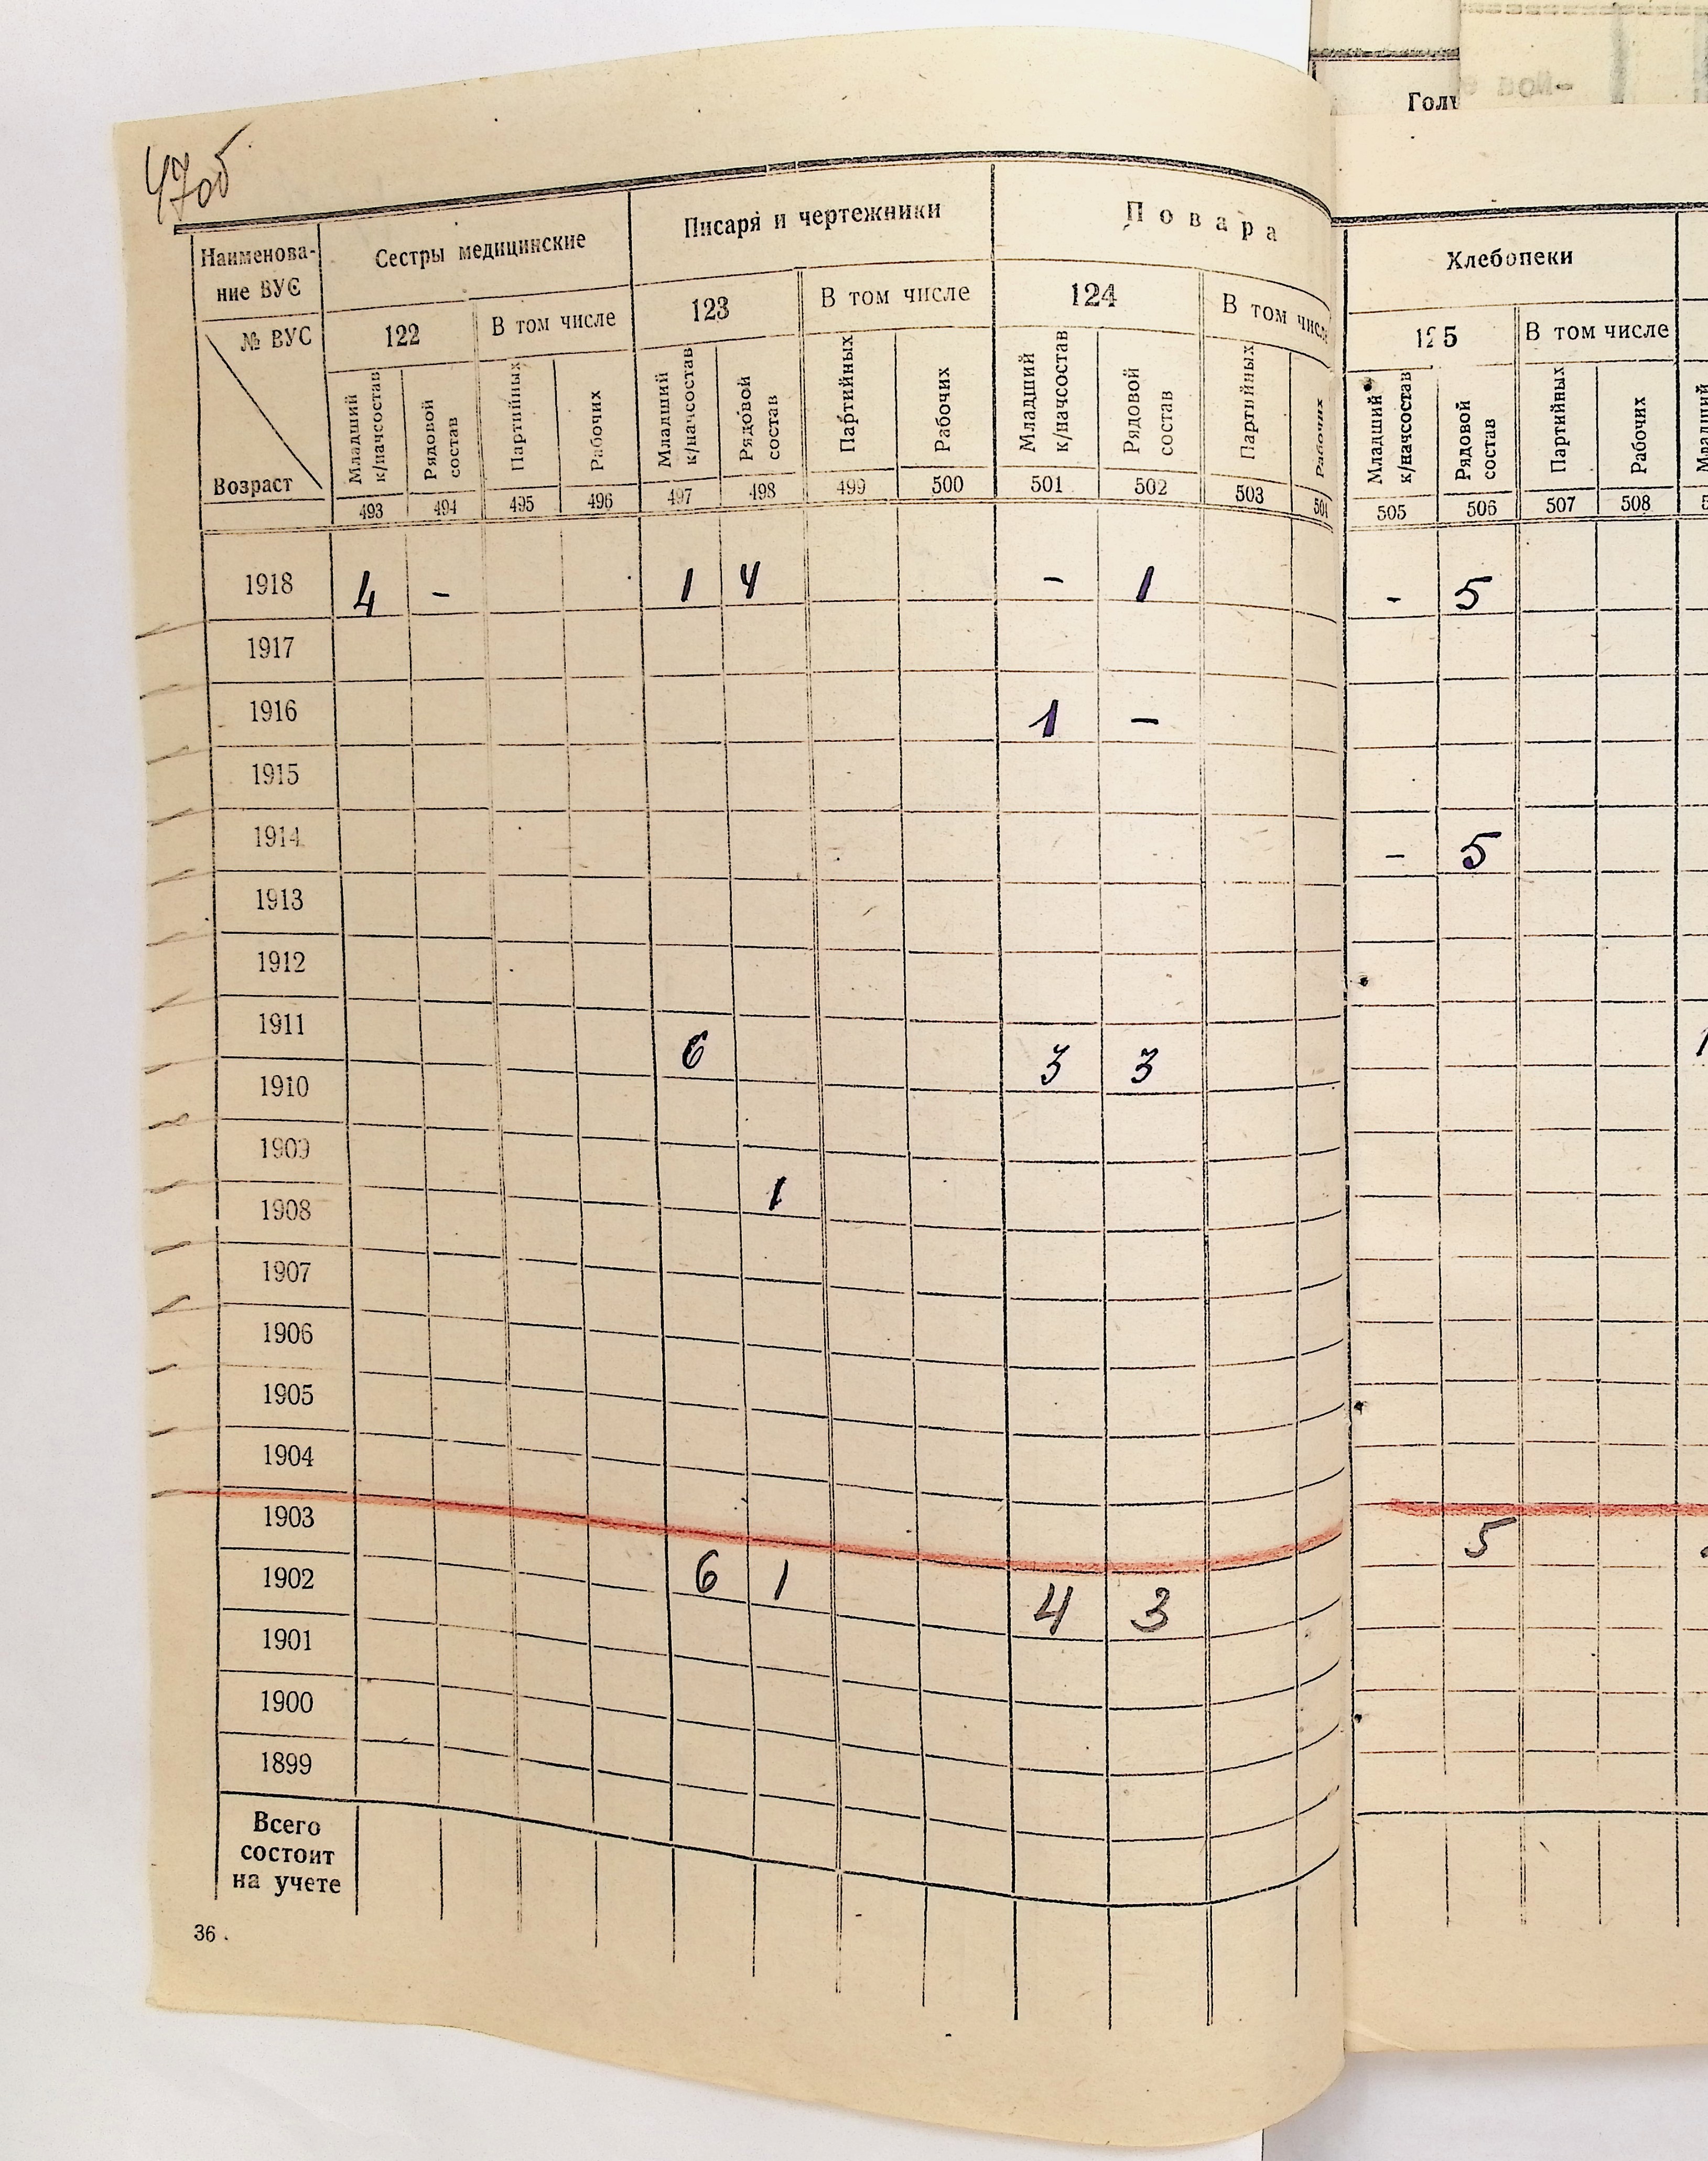 47об
Голу
Наименова-
ние ВУС
Сестры медицинские
Писаря и чертежники
Повара
Хлебопеки
№ ВУС
Возраст
122 В том числе 123 В том числе 124 В том числ 125 В том числе
Младший к/начсостав Рядовой состав Партийных Рабочих Младший к/начсостав Рядовой состав Партийных Рабочих Младший к/начсостав Рядовой состав Партийных Рабочих Младший к/начсостав Рядовой состав Партийных Рабочих Младший
493 494 495 496 497 498 499 500 501 502 503 504 505 506 507 508
1918 4 - 1 4 - 1 - 5
1917
1916 1 -
1915
1914 - 5
1913
1912
1911 6 3 3
1910
1909
1908 1
1907
1906
1905
1904
1903 5
1902 6 1 4 3
1901
1900
1899
Всего
состоит
на учете
36.